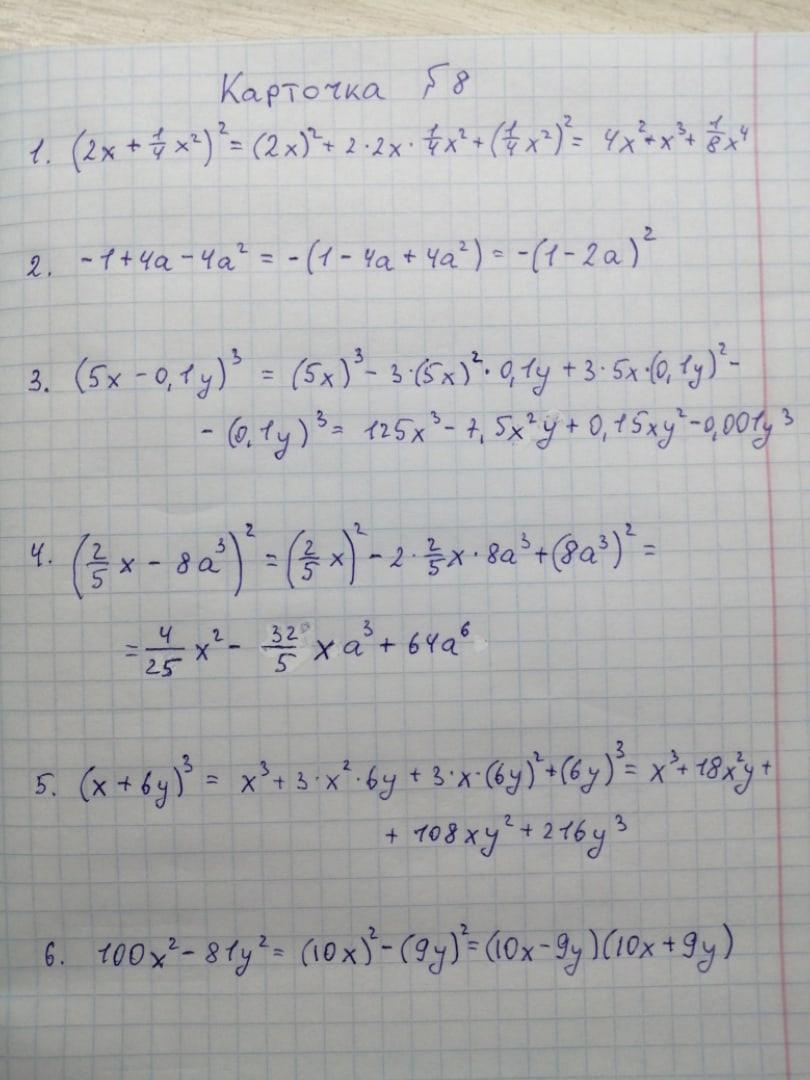 Карточка №8
1. (2x + 1/4 x²)² = (2x)² + 2·2x·1/4x² + (1/4x²)² = 4x² + x³ + 1/8x⁴
2. -1 + 4a - 4a² = -(1 - 4a + 4a²) = -(1 - 2a)²
3. (5x - 0,1y)³ = (5x)³ - 3·(5x)²·0,1y + 3·5x·(0,1y)² -
- (0,1y)³ = 125x³ - 7,5x²y + 0,15xy² - 0,001y³
4. (2/5 x - 8a³)² = (2/5 x)² - 2·2/5x·8a³ + (8a³)² =
= 4/25 x² - 32/5 xa³ + 64a⁶
5. (x + 6y)³ = x³ + 3·x²·6y + 3·x·(6y)² + (6y)³ = x³ + 18x²y +
+ 108xy² + 216y³
6. 100x² - 81y² = (10x)² - (9y)² = (10x - 9y)(10x + 9y)